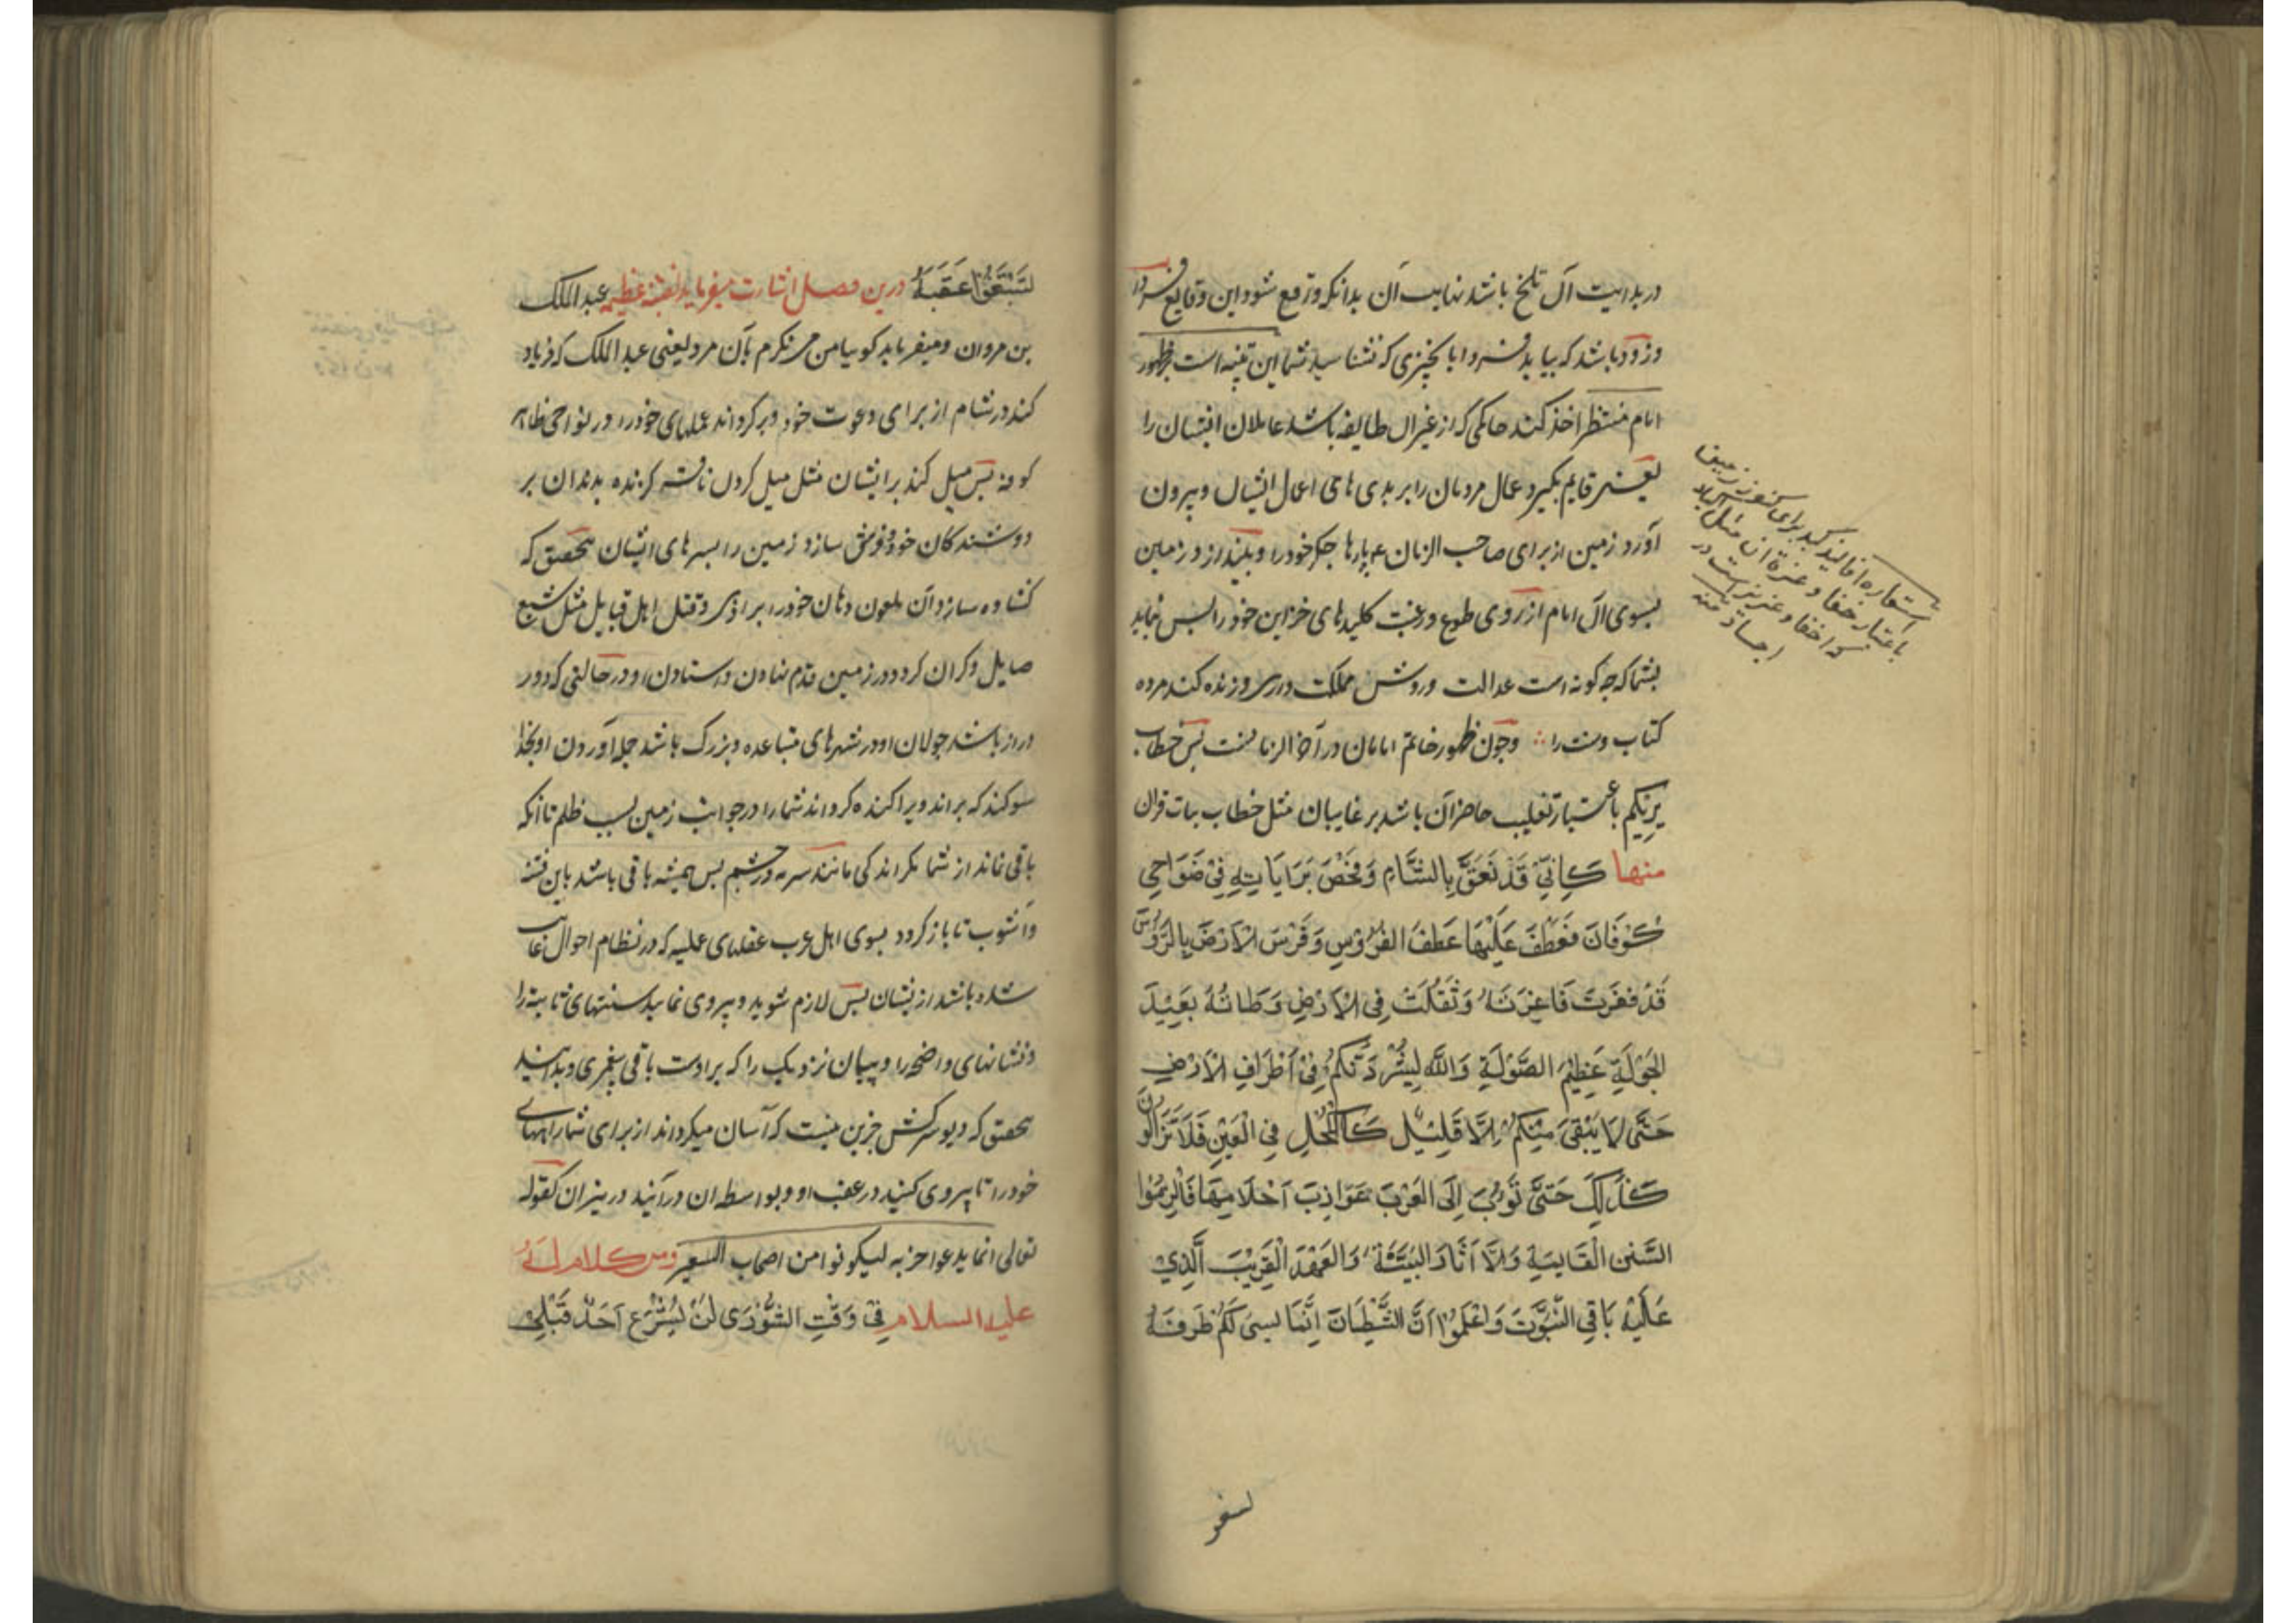 در بدایت آن تلخ باشد نهایت آن بدانکه وزقع شود این وقایع فردا
وزود باشد که بیاید فردا با بچیزی که نشناسید شما این تنبیه است بر ظهور
امام منتظر اخذ کند حاکمی که از غیر آن طایفه باشد عاملان ایشان را
یعنی قایم بگیرد عمال مردمان را بر بدی های اعمال ایشان وبیرون
آورد زمین از برای صاحب الزمان ع پارها جگر خود را وبیندازد زمین
بسوی آن امام از روی طوع ورغبت کلیدهای خزاین خود را پس نماید
بشما که چه گونه است عدالت وروش مملکت داری وزنده کند مرده
کتاب وسنت را وچون ظهور خاتم امامان در آخر الزمانست پس خطاب
یریکم باعتبار تغلیب حاضران باشد بر غایبان مثل خطابات قران
منها كَاَنّي قَدْ نَعَقَ بِالشَّامِ وَفَحَصَ بَرَايَاتِهِ فِيْ ضَوَاحِي
كُوْفَانَ فَعَطَفَ عَلَيْهَا عَطْفَ الضَّرُوْسِ وَفَرَشَ الْاَرْضَ بِالرُّؤُسِ
قَدْ فَغَرَتْ فَاغِرَتَهُ وَثَقُلَتْ فِي الْاَرْضِ وَطَاتُهُ بَعِيْدَ
الجَوْلَةِ عَظِيْمَ الصَّوْلَةِ وَاللهِ لَيُشَرِّدَنَّكُمْ فِيْ اَطْرَافِ الْاَرْضِ
حَتّى لَا يَبْقىَ مِنْكُمْ اِلَّا قَلِيْلٌ كَالْكُحْلِ فِي الْعَيْنِ فَلَا تَزَالُوْنَ
كَذلِكَ حَتىَّ تَؤُبَ اِلَى العَرَبِ عَوَازِبَ اَحْلَامِهَا فَالْزَمُوْا
السُّنَنَ الْقَايِمَةِ وَالْاَثَارَ الْبَيِّنَةَ وَالعَهْدَ الْقَرِيْبَ الَّذِيْ
عَلَيْهِ بَاقِي النُّبُوَّتَ وَاعْلَمُوْا اَنَّ الشَّيْطَانَ اِنَّمَا يسنى لَكُمْ طُرَقَهُ
استعاره افالیذ کبد برای کنوز زمین
باعتبار خفا وعزة آن مثل اکباد
که اخفا وعزیز است در
اجساد منه
لتتبعوا
لِتَتَّبِعُوْا عَقَبَهُ درین فصل اشارت میفرماید بفتنه عظیم عبد الملک
بن مروان ومیفرماید کوییا من می نگرم بآن مرد یعنی عبد الملک که فریاد
کند در شام از برای دعوت خود وبرگرداند علمهای خود را در نواحی ظاهر
کوفه پس میل کند بر ایشان مثل میل کردن ناقه کزنده بدندان بر
دوشندگان خود وفرش سازد زمین را بسرهای ایشان بتحقیق که
گشاده سازد آن ملعون دهان خود را برای وقتل اهل قبایل مثل سبع
صایل وگران گردد در زمین قدم نهادن واستادن او در حالتی که دور
دراز باشد جولان او در شهرهای متباعده وبزرگ باشد حمله آوردن او بخدا
سوگند که براند وپراکنده گرداند شما را در جوانب زمین بسبب ظلم تا آنکه
باقی نماند از شما مگر اندکی مانند سرمه در چشم پس همیشه باقی باشد باین فتنه
وآشوب تا باز گردد بسوی اهل عرب عقلهای عملیه که در نظام احوال غایب
شده باشد از یشان پس لازم شوید وپیروی نمایید سنتهای ثابته را
ونشانهای واضحه را وپیمان نزدیک را که بر اوست باقی پیغمبری وبدانید
بتحقیق که دیو سرکش جزین نیست که آسان میگرداند از برای شما راههای
خود را تا پیروی کنید در عقب او وبواسطه ان درآئید در نیران کقوله
تعالی انما یدعوا حزبه لیکونوا من اصحاب السعیر ومن کلام له
علیه السلام فِيْ وَقْتِ الشُّوْرٰى لَنْ يُسْرِعَ اَحَدٌ قَبْلِيْ